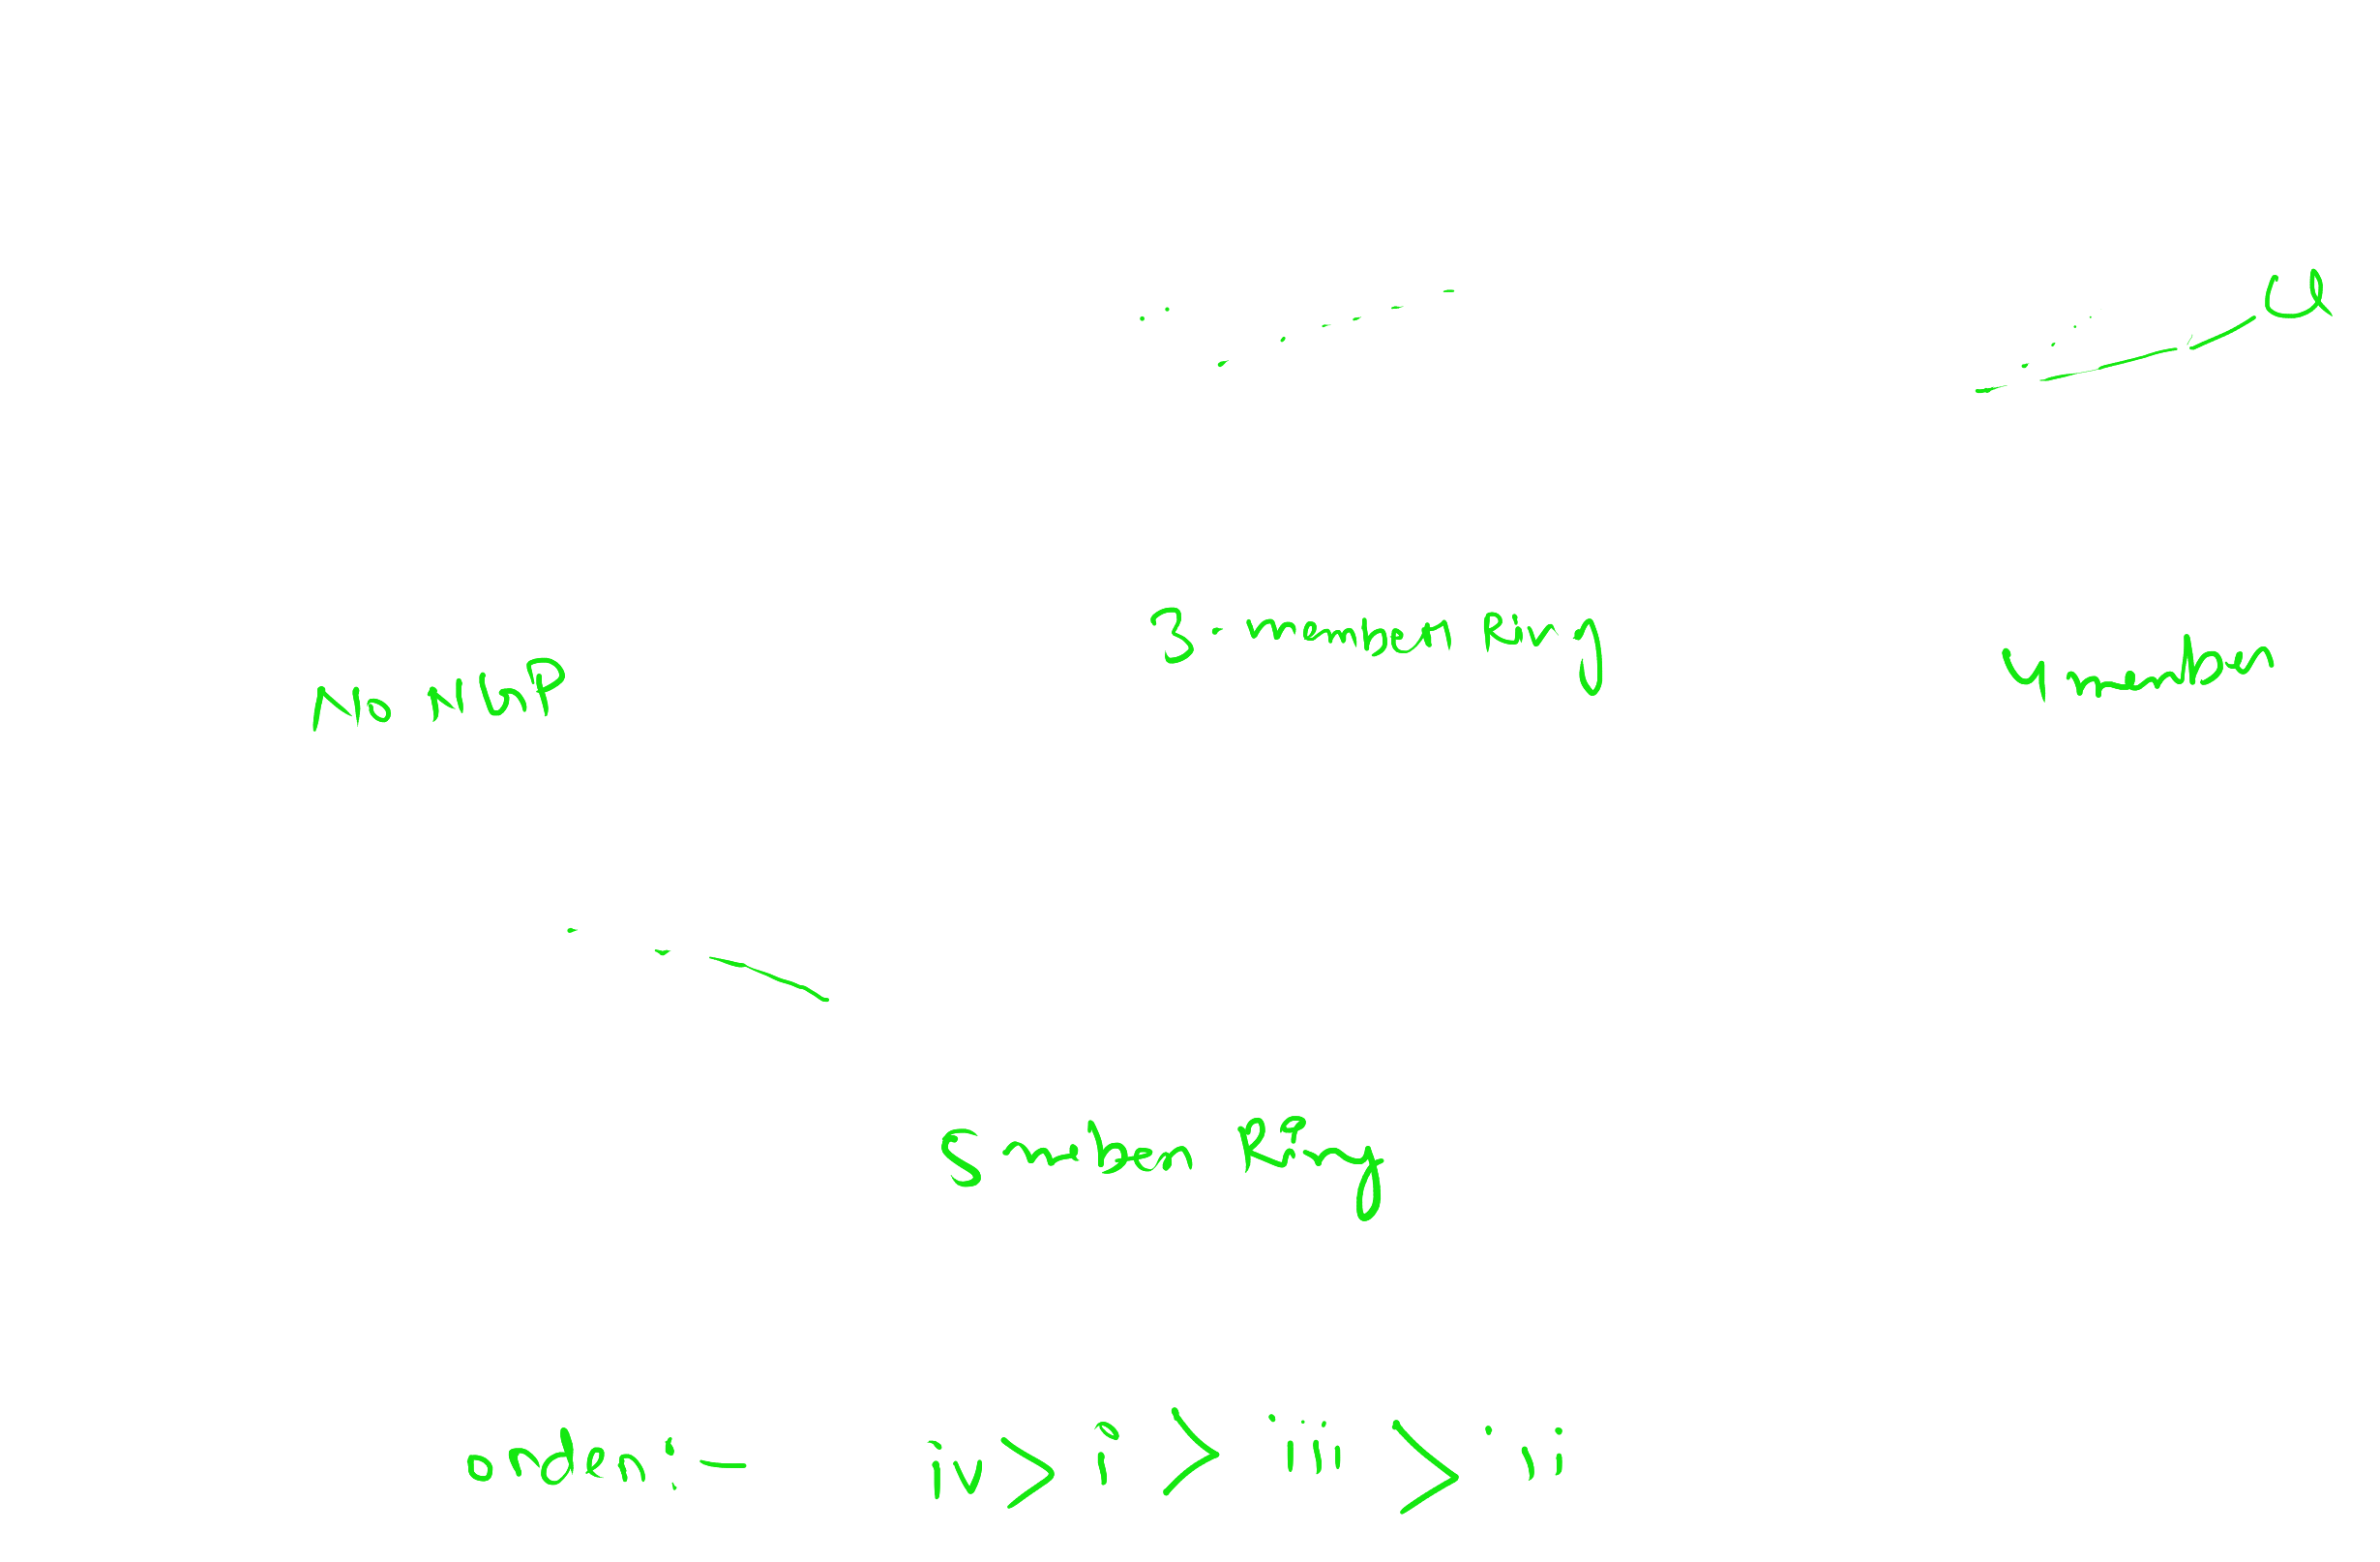 Cl
No NGP
3-member Ring
4 member
5 member Ring
order:- iv > i > iii > ii